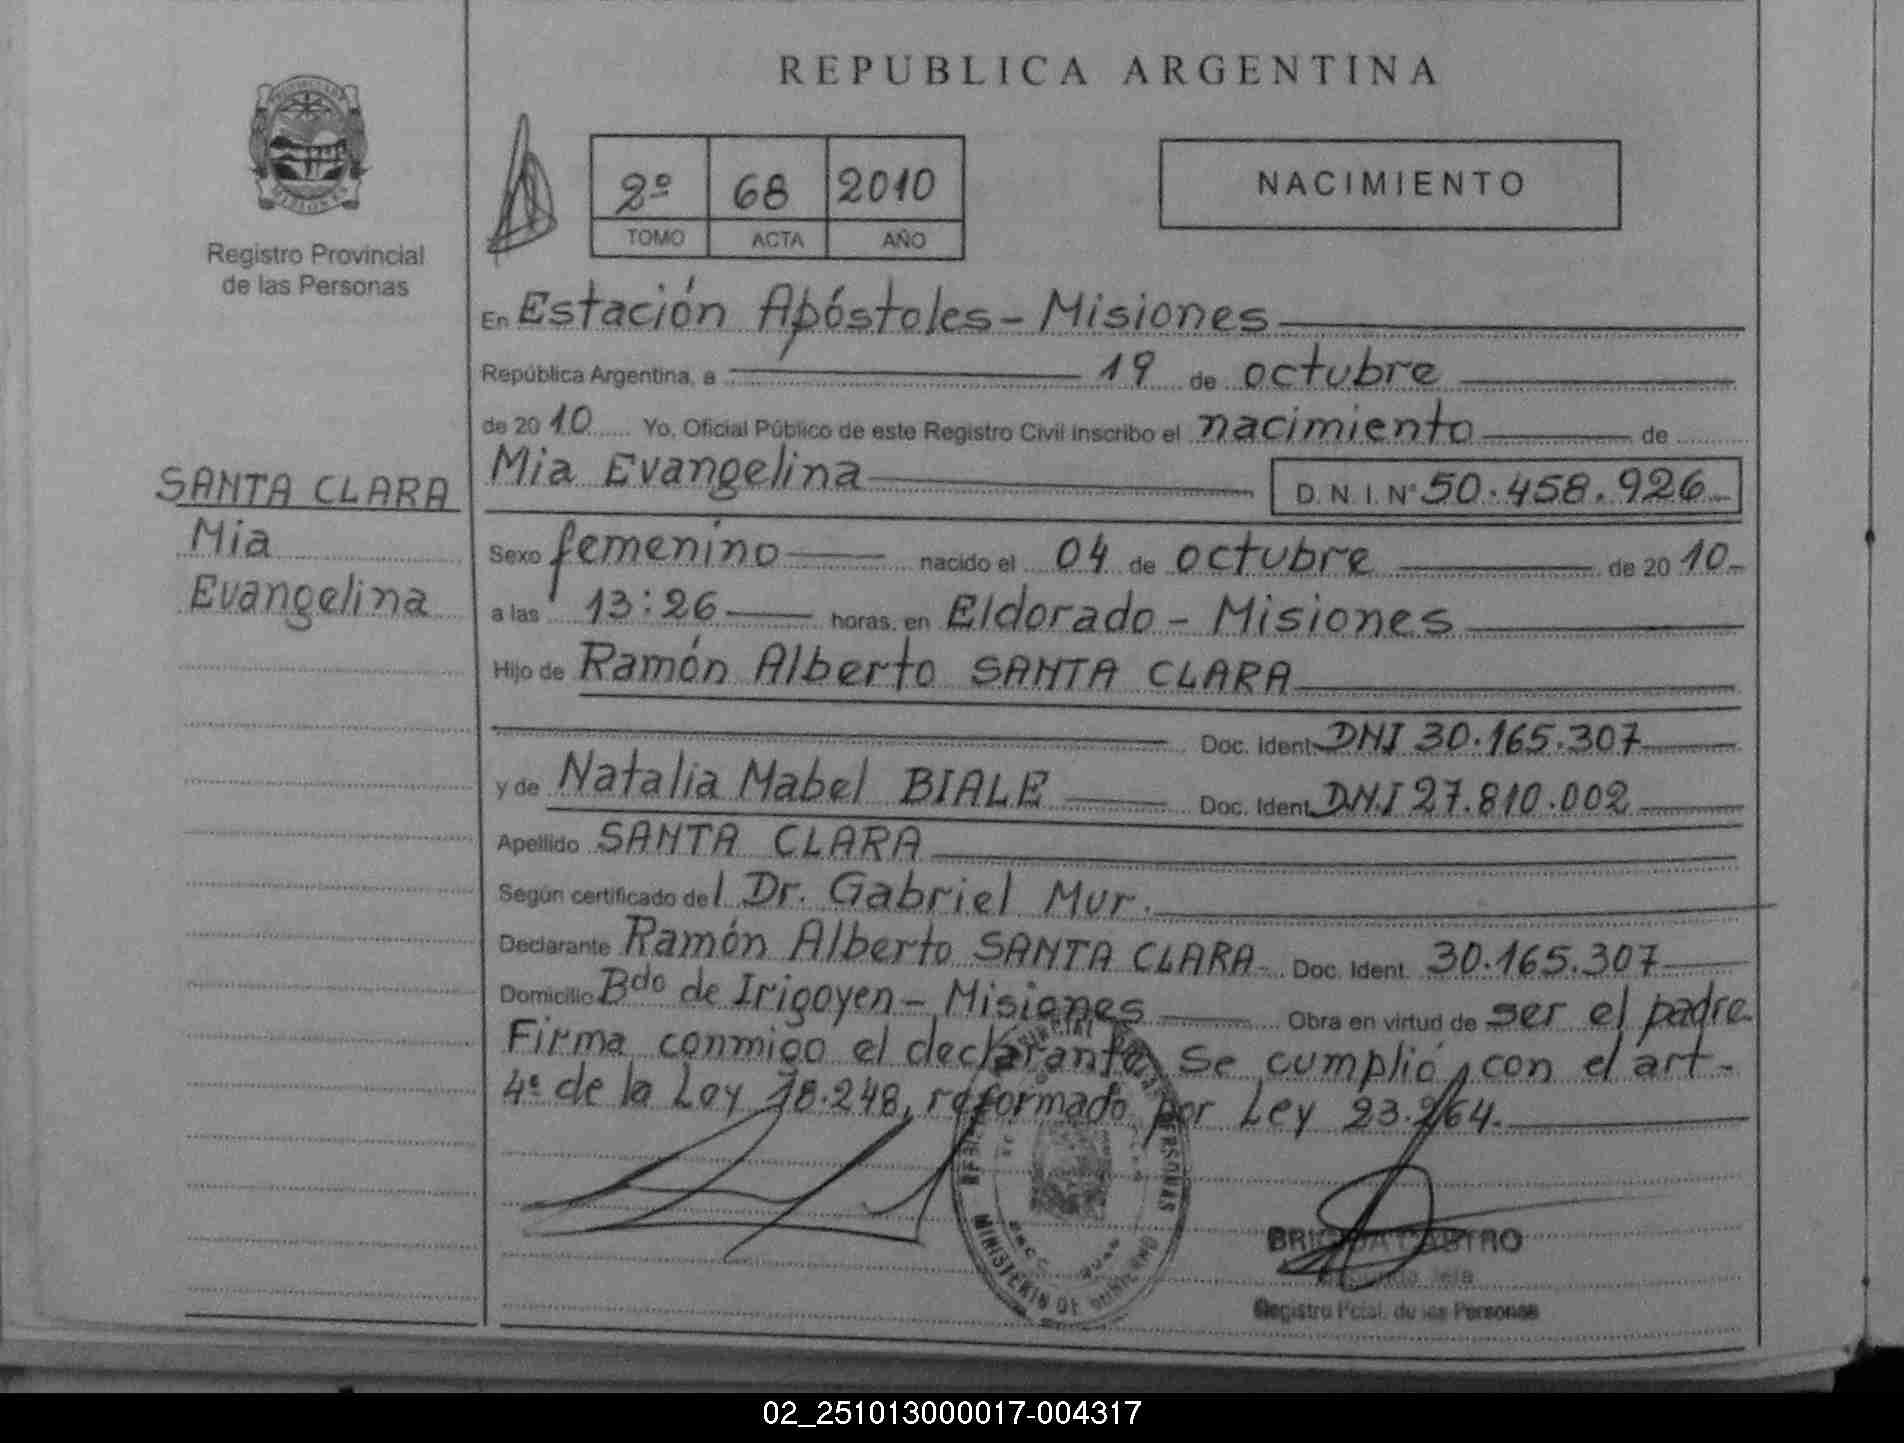 REPUBLICA ARGENTINA
Registro Provincial
de las Personas
2º 68 2010
TOMO ACTA AÑO
NACIMIENTO
En Estación Apóstoles - Misiones
República Argentina, a 19 de octubre
de 2010 Yo, Oficial Público de este Registro Civil inscribo el nacimiento de
Mia Evangelina D. N. I. Nº 50.458.926
SANTA CLARA
Mia
Evangelina
Sexo femenino nacido el 04 de octubre de 2010
a las 13:26 horas, en Eldorado - Misiones
Hijo de Ramón Alberto SANTA CLARA
Doc. Ident. DNI 30.165.307
y de Natalia Mabel BIALE Doc. Ident. DNI 27.810.002
Apellido SANTA CLARA
Según certificado del Dr. Gabriel Mur.
Declarante Ramón Alberto SANTA CLARA Doc. Ident. 30.165.307
Domicilio Bdo de Irigoyen - Misiones Obra en virtud de ser el padre.
Firma conmigo el declarante. Se cumplió con el art-
4º de la Ley 18.248, reformado por Ley 23.264.
PERSONAS
MINISTERIO DE GOBIERNO
CASTRO
Jefa
Registro Pcial. de las Personas
02_251013000017-004317